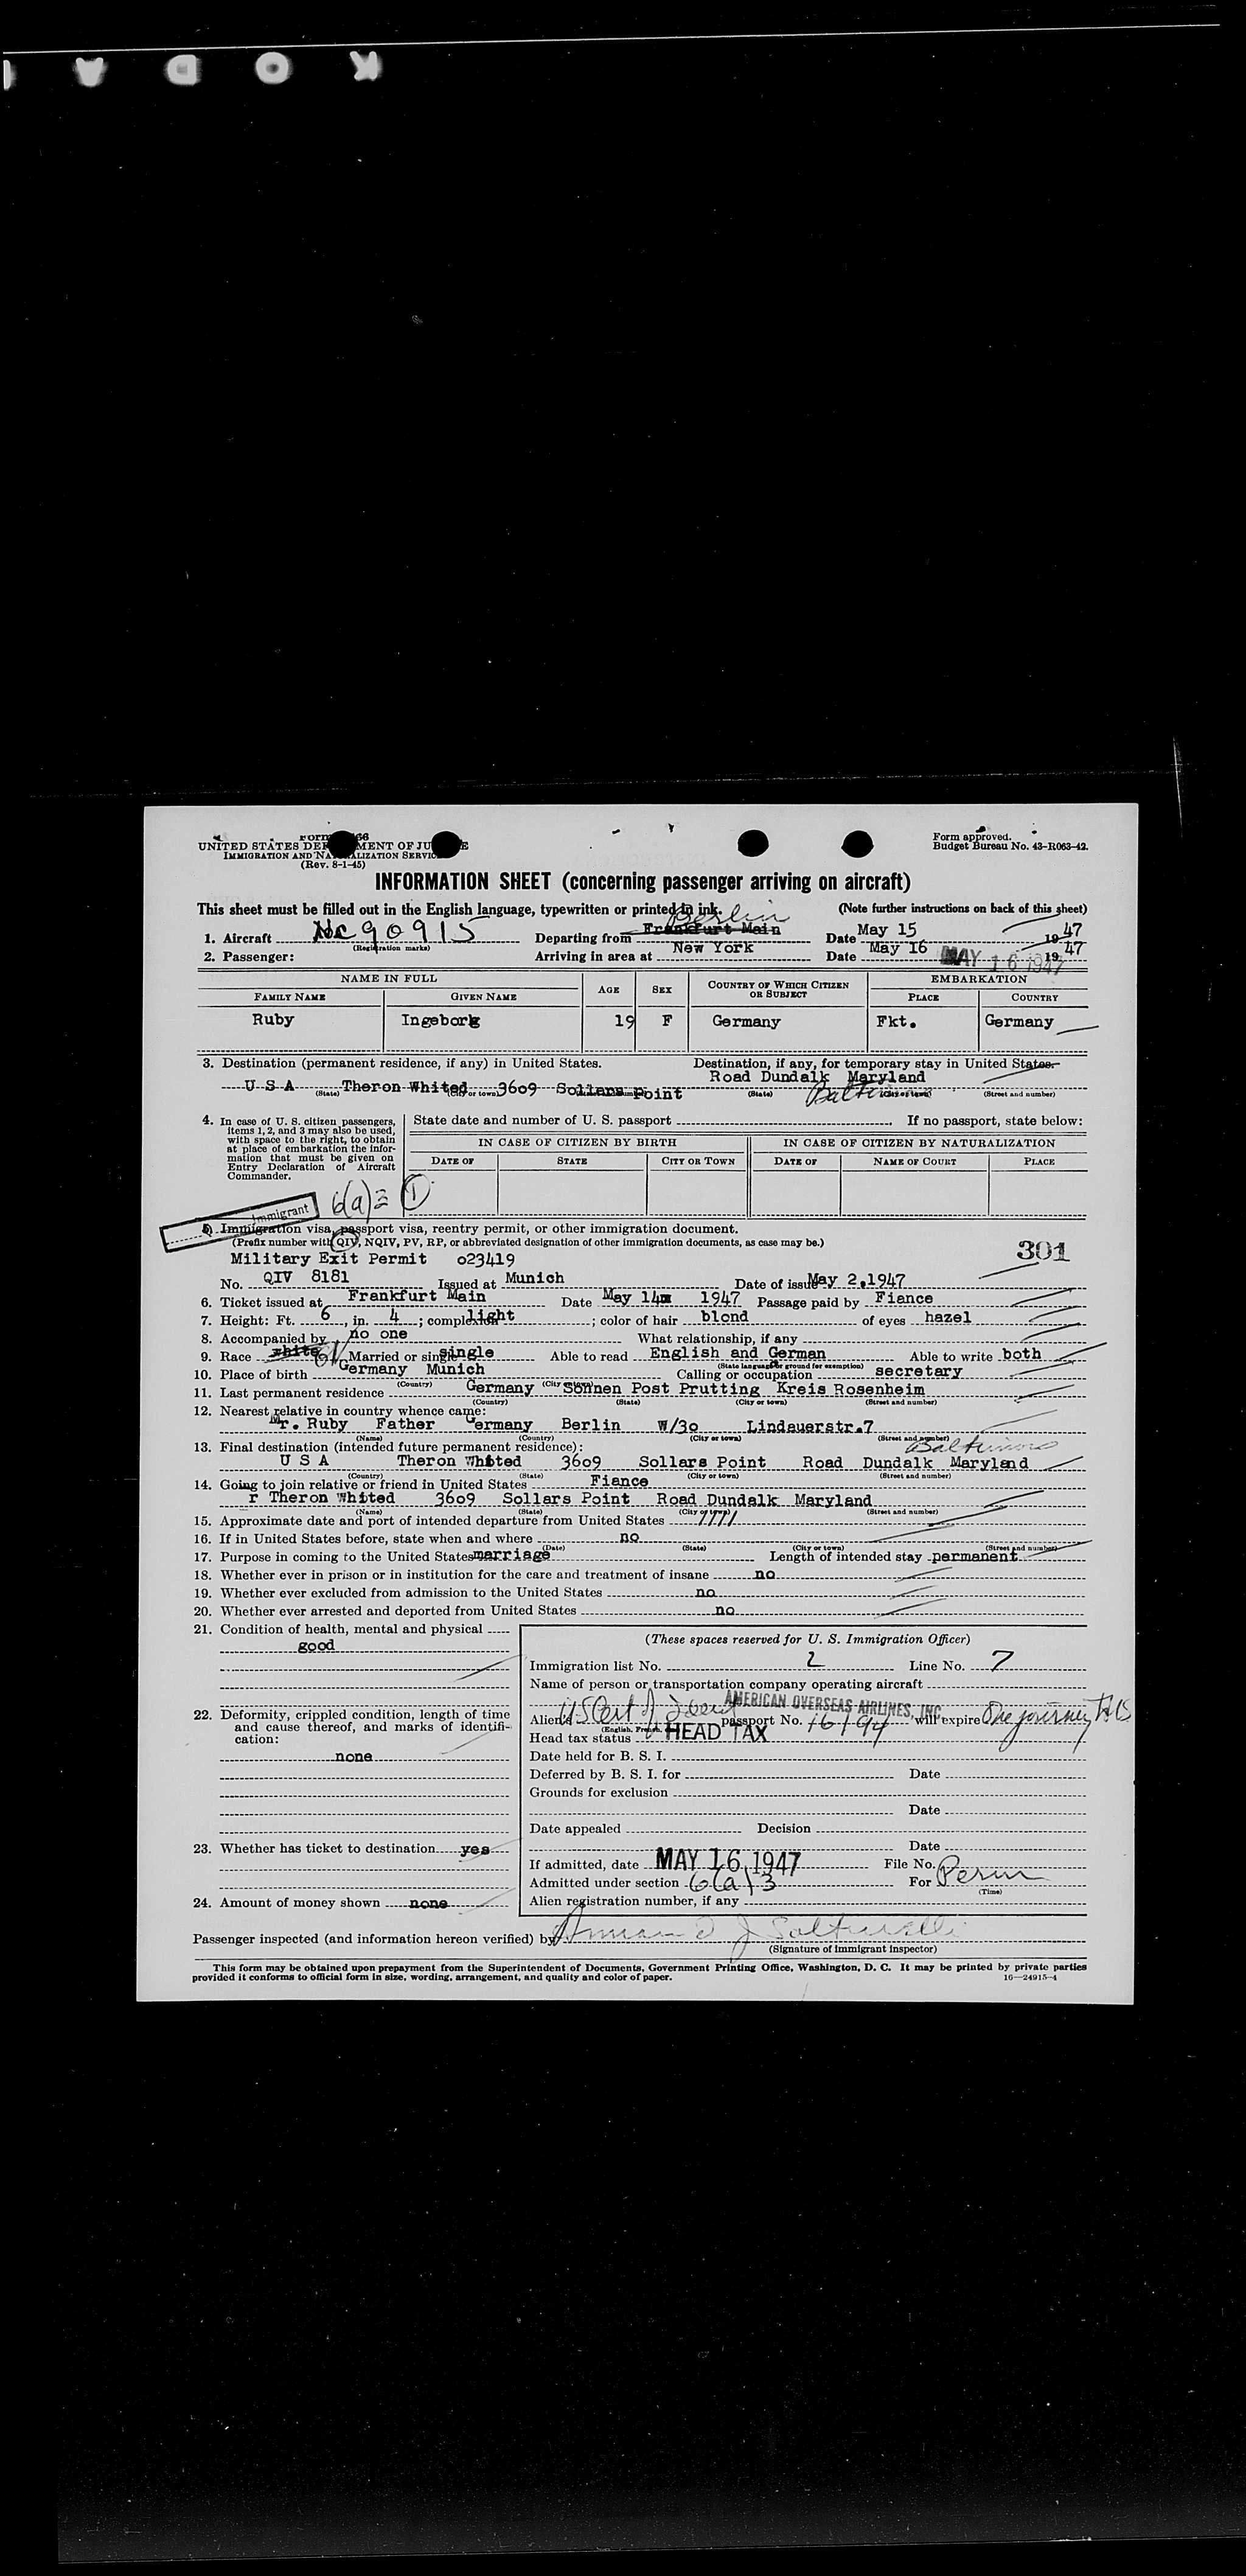 KODA
Form I-466
UNITED STATES DEPARTMENT OF JUSTICE
IMMIGRATION AND NATURALIZATION SERVICE
(Rev. 8-1-45)
Form approved.
Budget Bureau No. 43-R063-42.
INFORMATION SHEET (concerning passenger arriving on aircraft)
This sheet must be filled out in the English language, typewritten or printed in ink. (Note further instructions on back of this sheet)
Berlin
1. Aircraft Nc 90915 Departing from Frankfurt Main Date May 15 1947
(Registration marks)
2. Passenger: Arriving in area at New York Date May 16 MAY 16 1947 1947
NAME IN FULL AGE SEX COUNTRY OF WHICH CITIZEN OR SUBJECT EMBARKATION
FAMILY NAME GIVEN NAME PLACE COUNTRY
Ruby Ingeborg 19 F Germany Fkt. Germany
3. Destination (permanent residence, if any) in United States. Destination, if any, for temporary stay in United States.
Road Dundalk Maryland
U S A Theron Whited 3609 Sollars Point Baltimore
(State) (City or town) (State) (City or town) (Street and number)
4. In case of U. S. citizen passengers, items 1, 2, and 3 may also be used, with space to the right, to obtain at place of embarkation the information that must be given on Entry Declaration of Aircraft Commander.
State date and number of U. S. passport If no passport, state below:
IN CASE OF CITIZEN BY BIRTH IN CASE OF CITIZEN BY NATURALIZATION
DATE OF STATE CITY OR TOWN DATE OF NAME OF COURT PLACE
Immigrant 6(a)3 1
5. Immigration visa, passport visa, reentry permit, or other immigration document.
(Prefix number with QIV, NQIV, PV, RP, or abbreviated designation of other immigration documents, as case may be.)
301
Military Exit Permit 023419
No. QIV 8181 Issued at Munich Date of issue May 2.1947
6. Ticket issued at Frankfurt Main Date May 14 1947 Passage paid by Fiance
7. Height: Ft. 6, in. 4; complexion light; color of hair blond of eyes hazel
8. Accompanied by no one What relationship, if any
9. Race white Married or single single Able to read English and German Able to write both
(State language or ground for exemption)
10. Place of birth Germany Munich Calling or occupation secretary
(Country) (City or town)
11. Last permanent residence Germany Sonnen Post Prutting Kreis Rosenheim
(Country) (State) (City or town) (Street and number)
12. Nearest relative in country whence came:
Mr. Ruby Father Germany Berlin W/30 Lindauerstr.7
(Name) (Country) (City or town) (Street and number)
13. Final destination (intended future permanent residence): Baltimore
U S A Theron Whited 3609 Sollars Point Road Dundalk Maryland
(Country) (State) (City or town) (Street and number)
14. Going to join relative or friend in United States Fiance
r Theron Whited 3609 Sollars Point Road Dundalk Maryland
(Name) (State) (City or town) (Street and number)
15. Approximate date and port of intended departure from United States ////
16. If in United States before, state when and where no
(Date) (State) (City or town) (Street and number)
17. Purpose in coming to the United States marriage Length of intended stay permanent
18. Whether ever in prison or in institution for the care and treatment of insane no
19. Whether ever excluded from admission to the United States no
20. Whether ever arrested and deported from United States no
21. Condition of health, mental and physical
good
22. Deformity, crippled condition, length of time and cause thereof, and marks of identification:
none
23. Whether has ticket to destination yes
24. Amount of money shown none
(These spaces reserved for U. S. Immigration Officer)
Immigration list No. 2 Line No. 7
Name of person or transportation company operating aircraft
AMERICAN OVERSEAS AIRLINES, INC.
Alien's US Cert of Ident passport No. 16194 will expire One journey to US
(English, French,
Head tax status HEAD TAX
Date held for B. S. I.
Deferred by B. S. I. for Date
Grounds for exclusion
Date
Date appealed Decision
Date
If admitted, date MAY 16 1947 File No.
Admitted under section 6(a)3 For Perm
(Time)
Alien registration number, if any
Passenger inspected (and information hereon verified) by
(Signature of immigrant inspector)
This form may be obtained upon prepayment from the Superintendent of Documents, Government Printing Office, Washington, D. C. It may be printed by private parties
provided it conforms to official form in size, wording, arrangement, and quality and color of paper. 16—24915-4